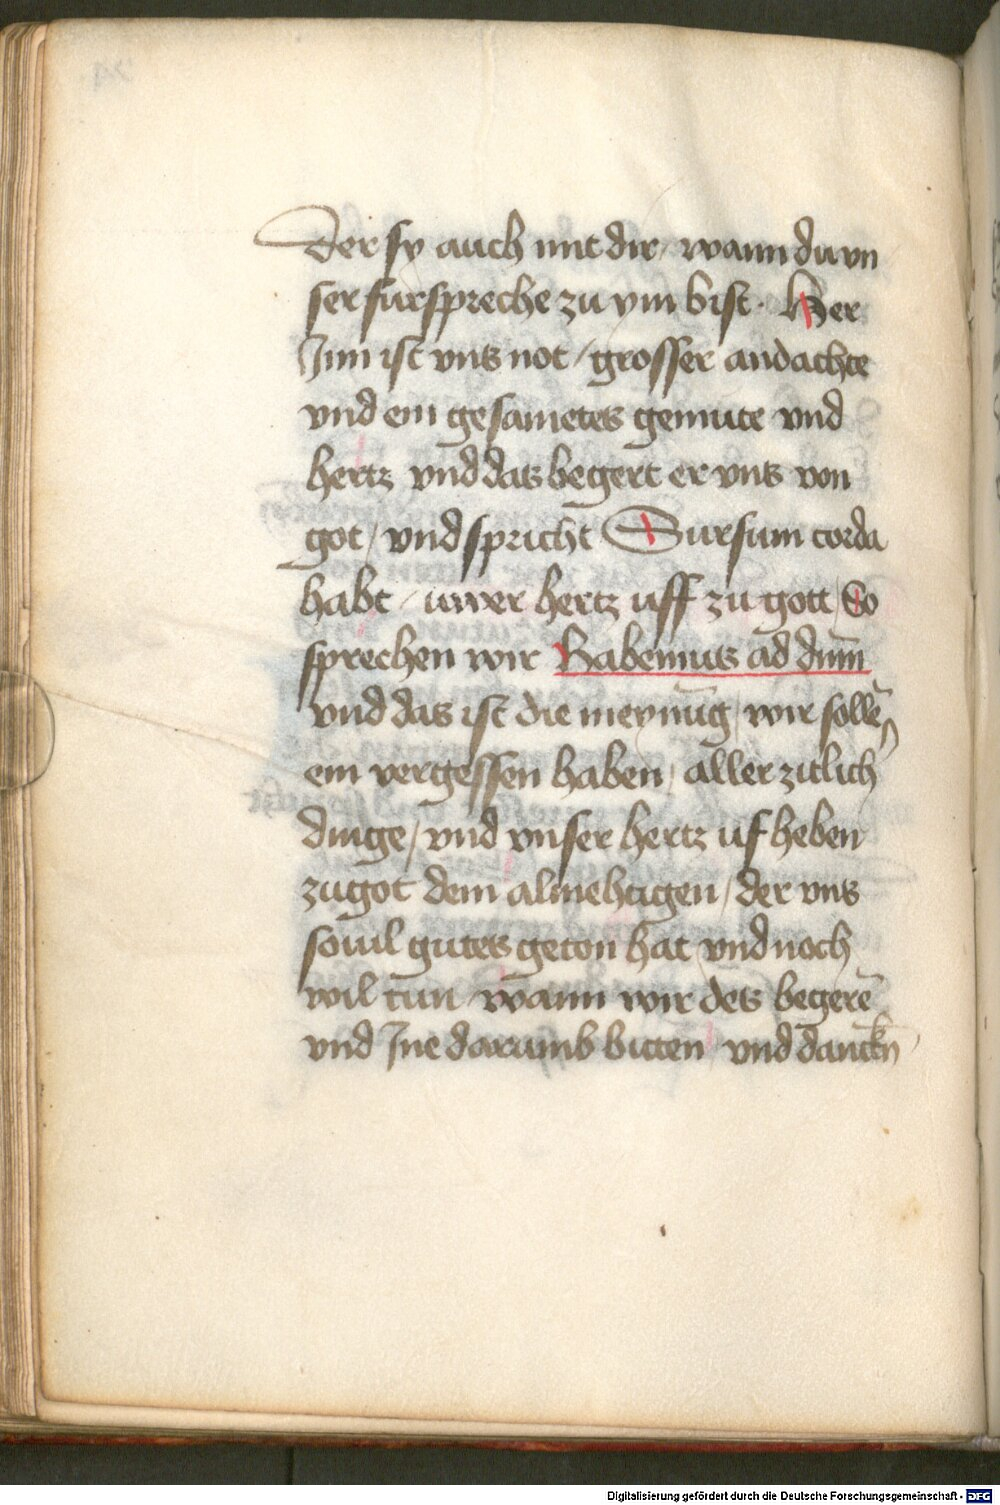 Der sy auch mit dir / wann du vn
ser fursprecher zu ym bist · Her
Inn ist vns not / grosser andachte
vnd ein gesametes gemute vnd
hertz vnd das begert er vns von
got / vnd spricht Sursum corda
habt / uwer hertz uff zu gott / So
sprechen wir Habemus ad dnm̄
vnd das ist die meynūg / wir sollē
ein vergessen haben / aller zitlich
dinge / vnd vnser hertz uf heben
zu got dem almehtigen / der vns
souil gutes geton hat vnd noch
wil tun / wann wir des begerē
vnd Ine darumb bitten vnd danckn̄
Digitalisierung gefördert durch die Deutsche Forschungsgemeinschaft - DFG